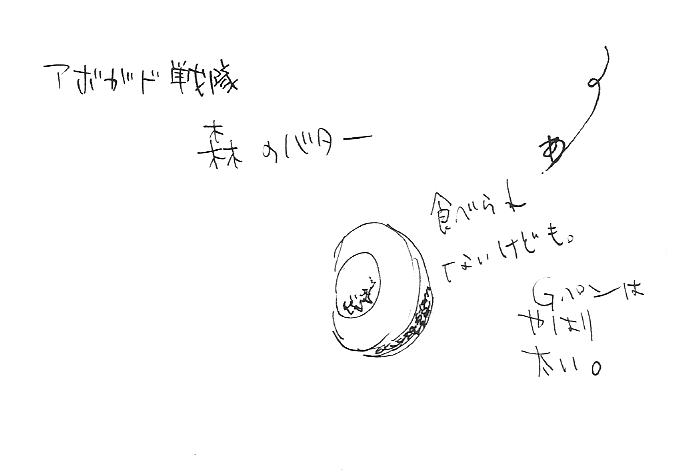 アボガド戦隊
森のバター
あ
食べられ
ないけども。
Gペンは
やはり
太い。